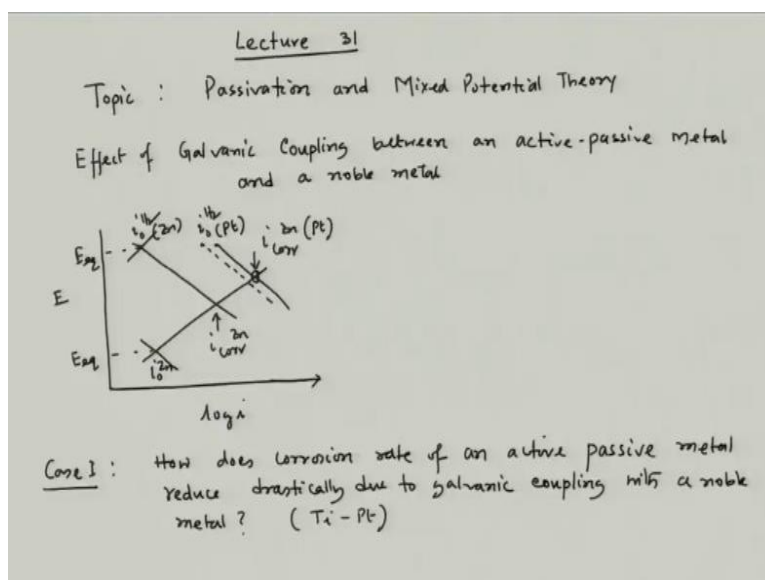 Lecture 31
Topic : Passivation and Mixed Potential Theory
Effect of Galvanic Coupling between an active-passive metal
and a noble metal
i₀ᴴ²(Zn) i₀ᴴ²(Pt) i corr Zn (Pt)
Eeq
E
i corr Zn
Eeq
i₀ Zn
log i
Case I : How does corrosion rate of an active passive metal
reduce drastically due to galvanic coupling with a noble
metal? (Ti - Pt)